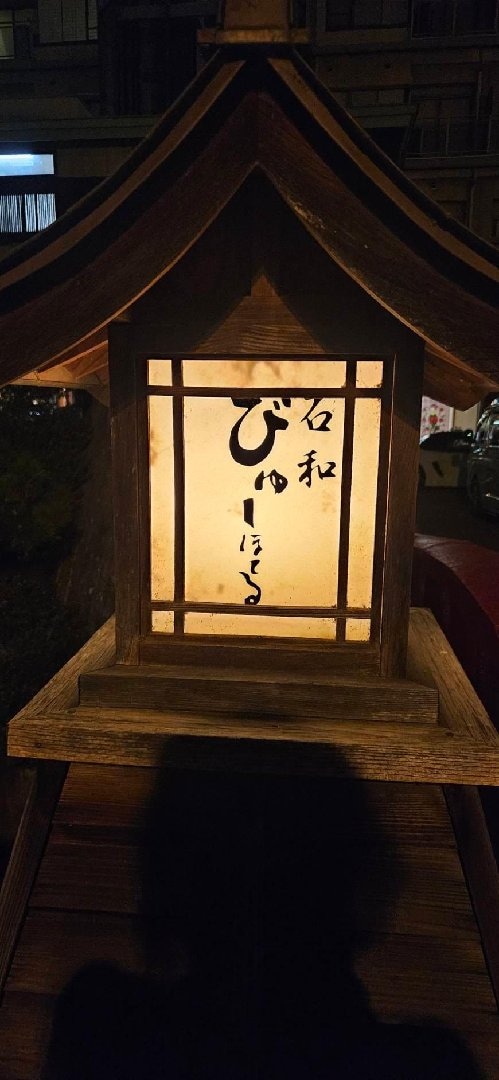 石和
びゅーほてる